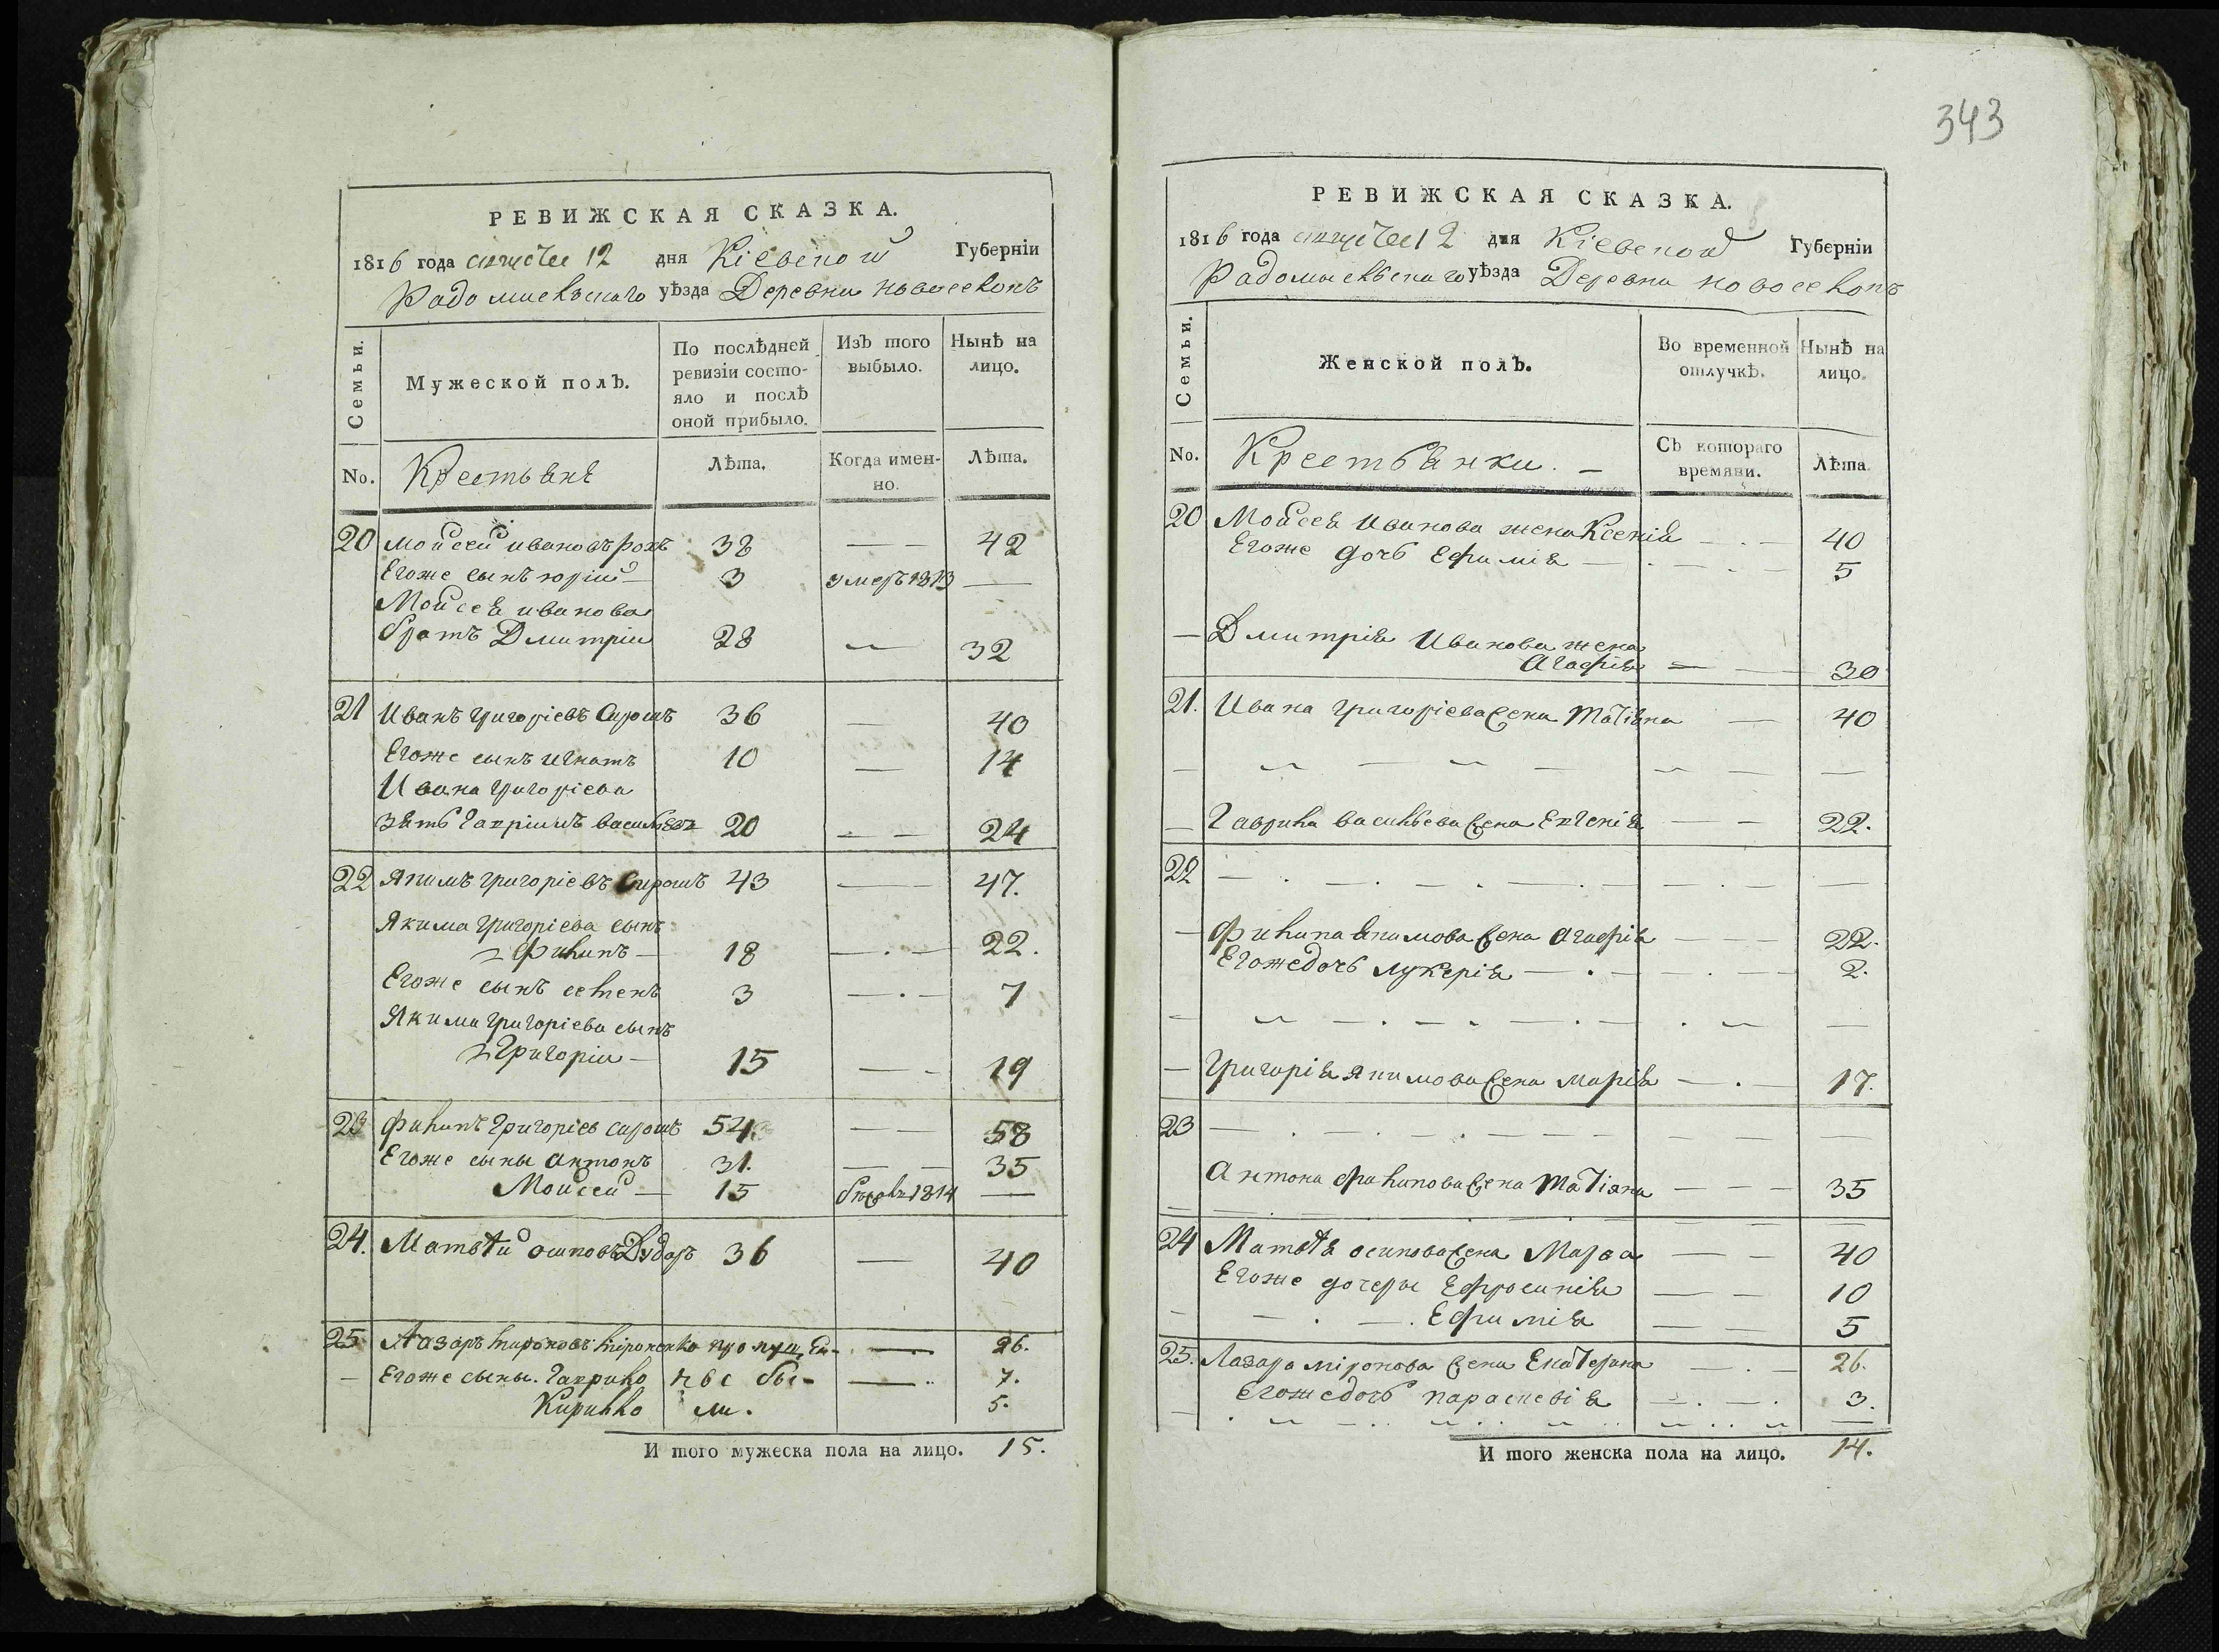 343
РЕВИЖСКАЯ СКАЗКА.
1816 года 12 дня Кіевской Губерніи
Радомысльскаго уѣзда Деревни Новоселокъ
Семьи.
Мужеской полъ.
По послѣдней ревизіи состояло и послѣ оной прибыло.
Изъ того выбыло.
Нынѣ на лицо.
No. Крестьяне
Лѣта.
Когда именно.
Лѣта.
20 Мойсей Ивановъ 38 — — 42
Егоже сынъ Юрий — 3 умеръ 1813 —
Мойсея Иванова
братъ Дмитрій 28 — 32
21 Иванъ Григоріевъ Сирошъ 36 — 40
Егоже сынъ Игнатъ 10 — 14
Ивана Григоріева
зять Гавріилъ Васильевъ 20 — — 24
22 Якимъ Григоріевъ Сирошъ 43 — 47.
Якима Григоріева сынъ
Филипъ — 18 — . — 22.
Егоже сынъ Семенъ 3 — . — 7
Якима Григоріева сынъ
Григоріи — 15 — - 19
23 Филипъ Григоріев Сирошъ 54. — — 58
Егоже сыны Антонъ 31. — — 35
Мойсей — 15 1814 —
24. Матвѣй Осиповъ Дударъ 36 — 40
25 Лазаръ Мироновъ Міроненко пропущен- — 26.
— Егоже сыны. Гаврило ны бы- — .. 7.
Кирилло ли. 5.
И того мужеска пола на лицо. 15.
РЕВИЖСКАЯ СКАЗКА.
1816 года 12 дня Кіевской Губерніи
Радомысльскаго уѣзда Деревни Новоселокъ
Семьи.
Женской полъ.
Во временной отлучкѣ.
Нынѣ на лицо.
No. Крестьянки. —
Съ котораго времяни.
Лѣта.
20 Мойсея Иванова жена Ксенія — . — 40
Егоже дочь Ефимія — . — . — 5
— Дмитрія Иванова жена
Агафія = — 30
21. Ивана Григоріева жена Татіяна — 40
— Гаврила Васильева жена Евгенія — — 22.
22 — . — . — . — . — — . — —
— Филипа Якимова жена Агафія — — — 22.
Егоже дочь Лукерія — . — . — 2.
— Григорія Якимова жена Марія — . — 17.
23 — . — . — . — — — — —
Антона Филипова жена Татіяна — — — 35
24 Матвѣя Осипова жена — — 40
Егоже дочеры Ефросинія — — 10
— . — . Ефимія — — 5
25. Лазара Міронова жена Екатерина — . — 26.
Егоже дочь Параскевія — . — . 3.
И того женска пола на лицо. 14.